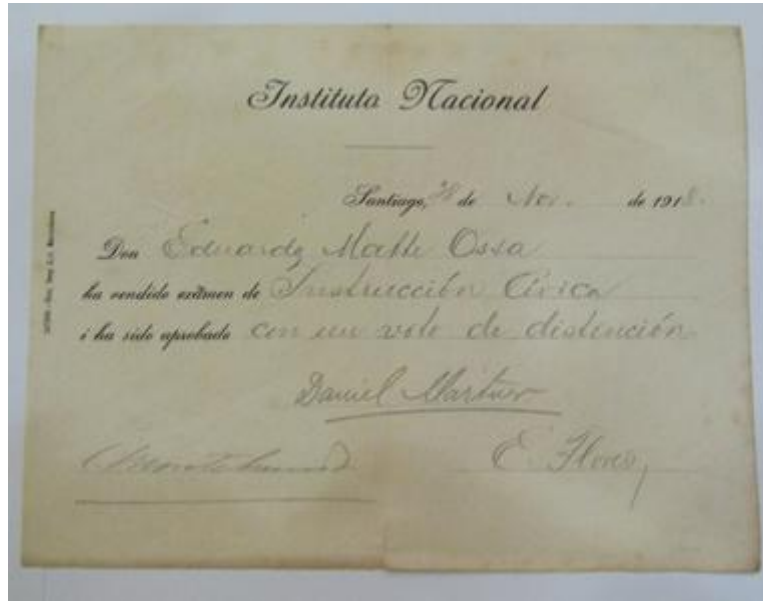 Instituto Nacional
Santiago, 28 de Nov. de 1918.
Don Eduardo Matte Ossa
ha rendido exámen de Instrucción Cívica
i ha sido aprobado con un voto de distinción
Daniel Martner
E. Flores